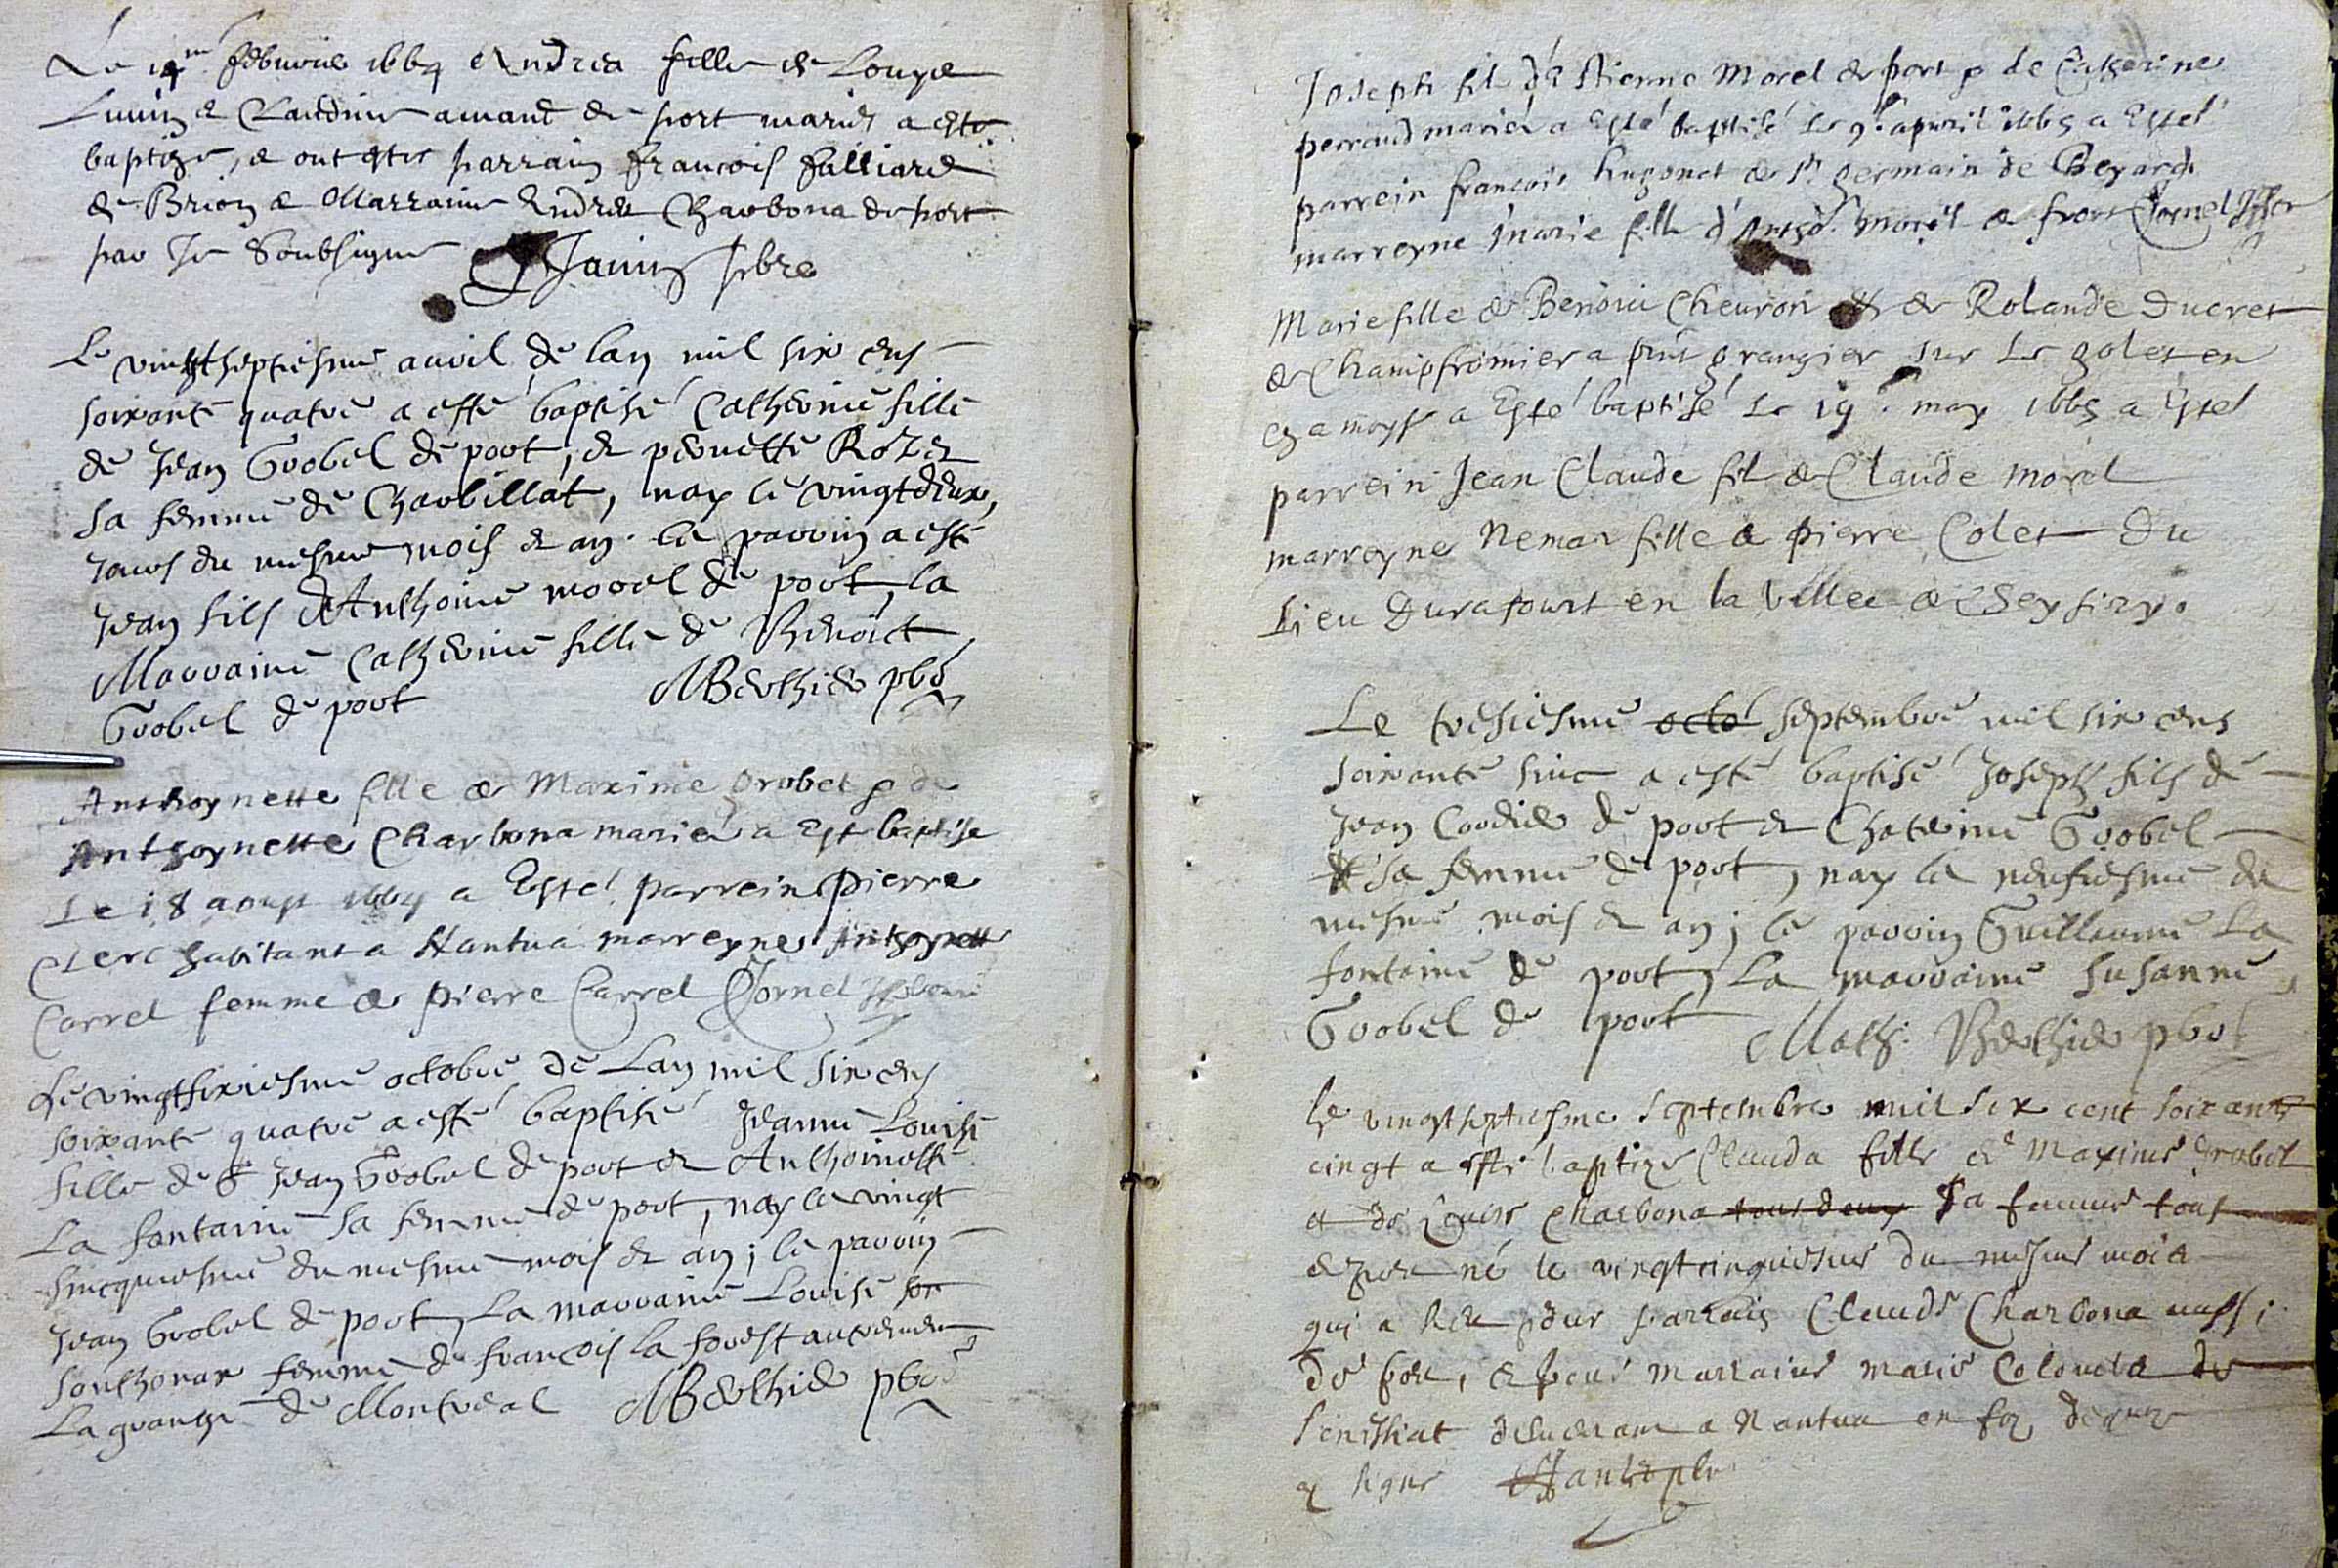 Le febvrier 1664 Andrea fille de Louys
& Claudine amand de port mariés a esté
baptizé, & ont estes parrain francois falliard
de Brion & Marraine Andrea Charbona de port
par Je Soubsigné Janin pbre
Le vingtseptiesme avril de lan mil six cens
soixante quatre a esté baptisé Catherine fille
de Jean Grobel de port, & pernette Rozet
sa femme de Charbillat, nay le vingtdeux,
jours du mesme mois & an. le parrin a esté
Jean fils d'Anthoine morel de port, la
Marraine Catherine fille de Benoict
Grobel de port MBerthier pbr
Anthoynette fille de Maxime Grobet & de
Anthoynette Charbona mariés a Esté baptisé
Le 18 aoust 1664 a Esté parrein Pierre
Clerc habitant a Nantua marreyne Anthoynette
Carrel femme de pierre Carrel Jornel
Le vingtsixiesme octobre de Lan mil six cens
soixante quatre a esté baptisé Jeanne Louise
fille de Jean Grobel de port & Anthoinette
La fontaine sa femme de port, nay le vingt
sincquiesme du mesme mois & an; le parrin
Jean Grobel de port, La marraine Louise
Sonthonax femme de francois la forest
La grange de Montreal MBerthier pbr
Joseph fil d'Estienne Morel de port & de Catherine
perraud mariés a Esté baptisé Le 9e apvril 1665 a Esté
parrein françois hugonet de St germain de Beyard
marreyne marie fille d'Antho. morel de port Jornel
Marie fille de Benoict Chevron & de Rolande Ducret
de Champfromier a grangier sur Le golet en
a Esté baptisé Le 19e may 1665 a Esté
parrein Jean Claude fil de Claude morel
marreyne fille a pierre Colet Du
Lieu Durafourt en la vallee de Cheysiry.
Le tresiesme octo septembre mil six cens
soixante sinc a esté baptisé Joseph fils de
Jean Cordier de port & Chaterine Grobel
sa femme de port, nay le neufiesme du
mesme mois & an; le parrin Guillaume La
fontaine de port, La marraine Susanne
Grobel de port Math. Berthier pbr
le vingtseptiesme septembre mil six cent soixante
cingt a esté baptize Clauda fille de Maxime Grobet
et de Louise Charbona tous deux sa femme tous
de né le vingtcinquiesme du mesme mois
qui a heu pour parrain Claude Charbona aussi
de port, & pour marraine marie Colomba de
a Nantua en foy dequoy
ay signé